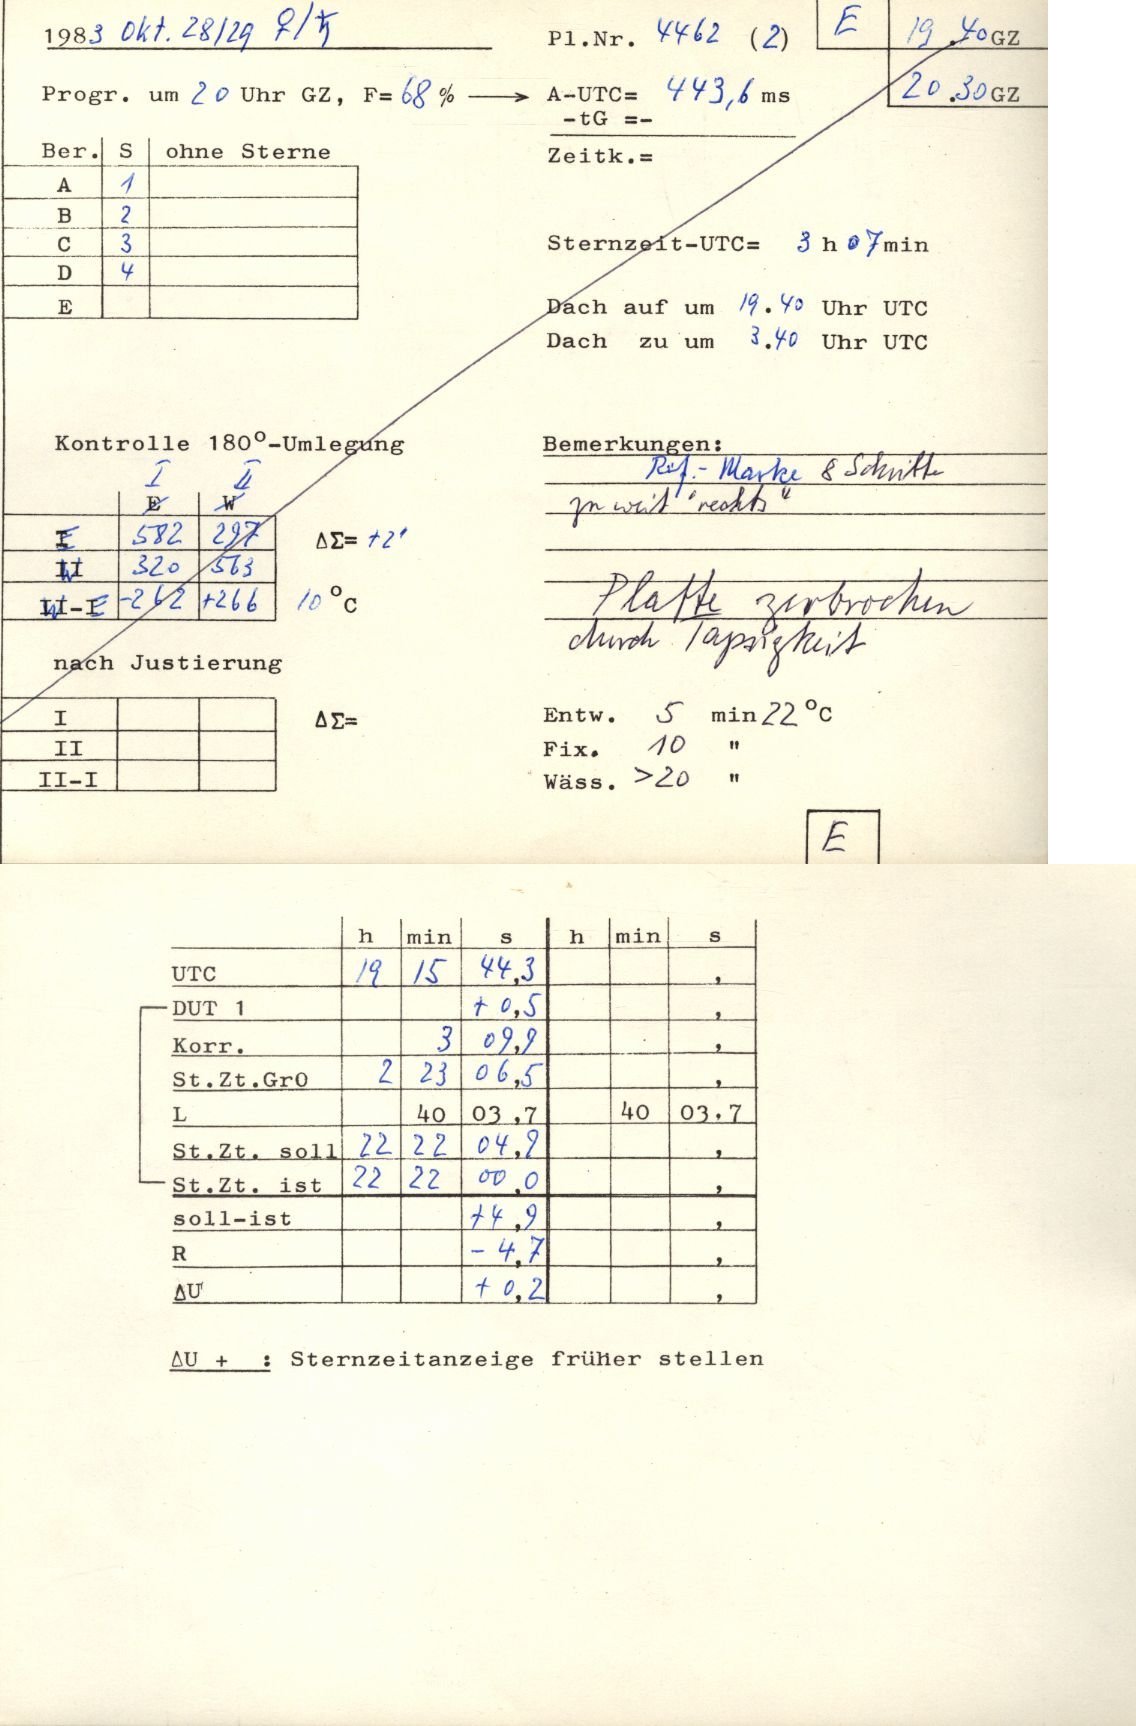 1983 Okt. 28/29 ♀/♄ Pl.Nr. 4462 (2) E 19.40 GZ
Progr. um 20 Uhr GZ, F= 68 % ⟶ A-UTC= 443,6 ms 20.30 GZ
-tG =-
Ber. S ohne Sterne Zeitk.=
A 1
B 2
C 3 Sternzeit-UTC= 3 h 07 min
D 4
E Dach auf um 19.40 Uhr UTC
Dach zu um 3.40 Uhr UTC
Kontrolle 180°-Umlegung Bemerkungen:
I II Ref.-Marke 8 Schritte
E W zu weit "rechts"
E 582 297 ΔΣ= +2'
W 320 563
W-E -262 +266 10 °C Platte zerbrochen
durch Tapsigkeit
nach Justierung
I ΔΣ= Entw. 5 min 22 °C
II Fix. 10 "
II-I Wäss. >20 "
E
h min s h min s
UTC 19 15 44,3 ,
DUT 1 + 0,5 ,
Korr. 3 09,9 ,
St.Zt.Gr0 2 23 06,5 ,
L 40 03,7 40 03,7
St.Zt. soll 22 22 04,9 ,
St.Zt. ist 22 22 00,0 ,
soll-ist +4,9 ,
R - 4,7 ,
ΔU + 0,2 ,
ΔU + : Sternzeitanzeige früher stellen